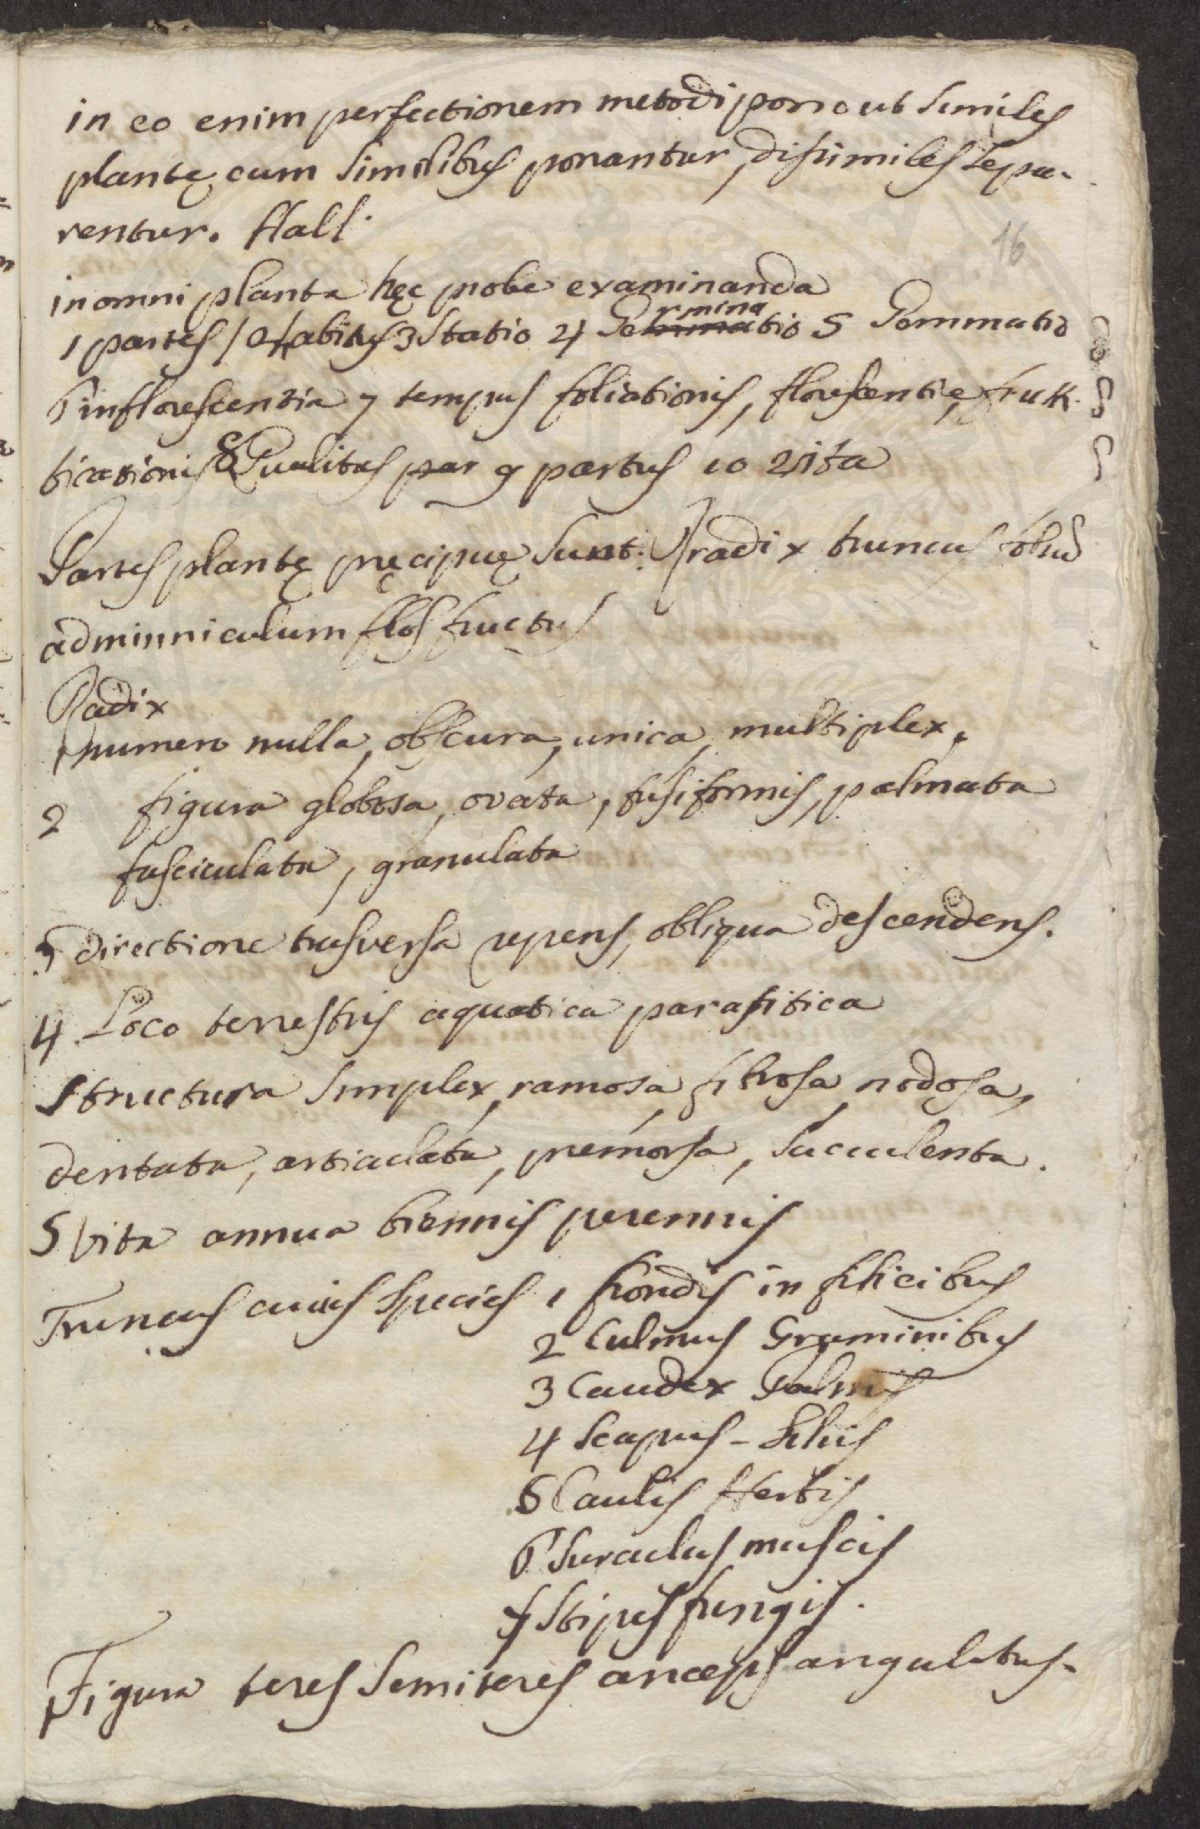 in eo enim perfectionem metodi pono ut similes
plantę cum similibus ponantur, dissimiles sepa-
rentur. Hall.
16
in omni planta hęc probe examinanda
1 partes / 2 Habitus 3 Statio 4 Germinatio 5 Gommatio
6 inflorescentia 7 tempus foliationis, florescentie, fruk
ticationis 8 Qualitas par 9 partus 10 vita
Partes plantę pręcipuę sunt. radix truncus folium
adminniculum flos fructus
Radix
1 numero nulla, obscura, unica, multiplex,
2 figura globosa, ovata, fusiformis, palmata
fasciculata, granulata
3 directione trasversa repens, obliqua descendens.
4 Loco terrestris aquatica parasitica
structura simplex, ramosa, fibrosa, nodosa,
dentata, articulata, premorsa, succulenta.
5 Vita annua biennis perennis
Truncus cuius species 1 frondis in filicibus
2 Culmus Graminibus
3 Caudex Palmis
4 Scapus - Liliis
5 Caulis Herbis
6 Surculus muscis
7 Stipes fungis.
Figura teres semiteres anceps angulatus-